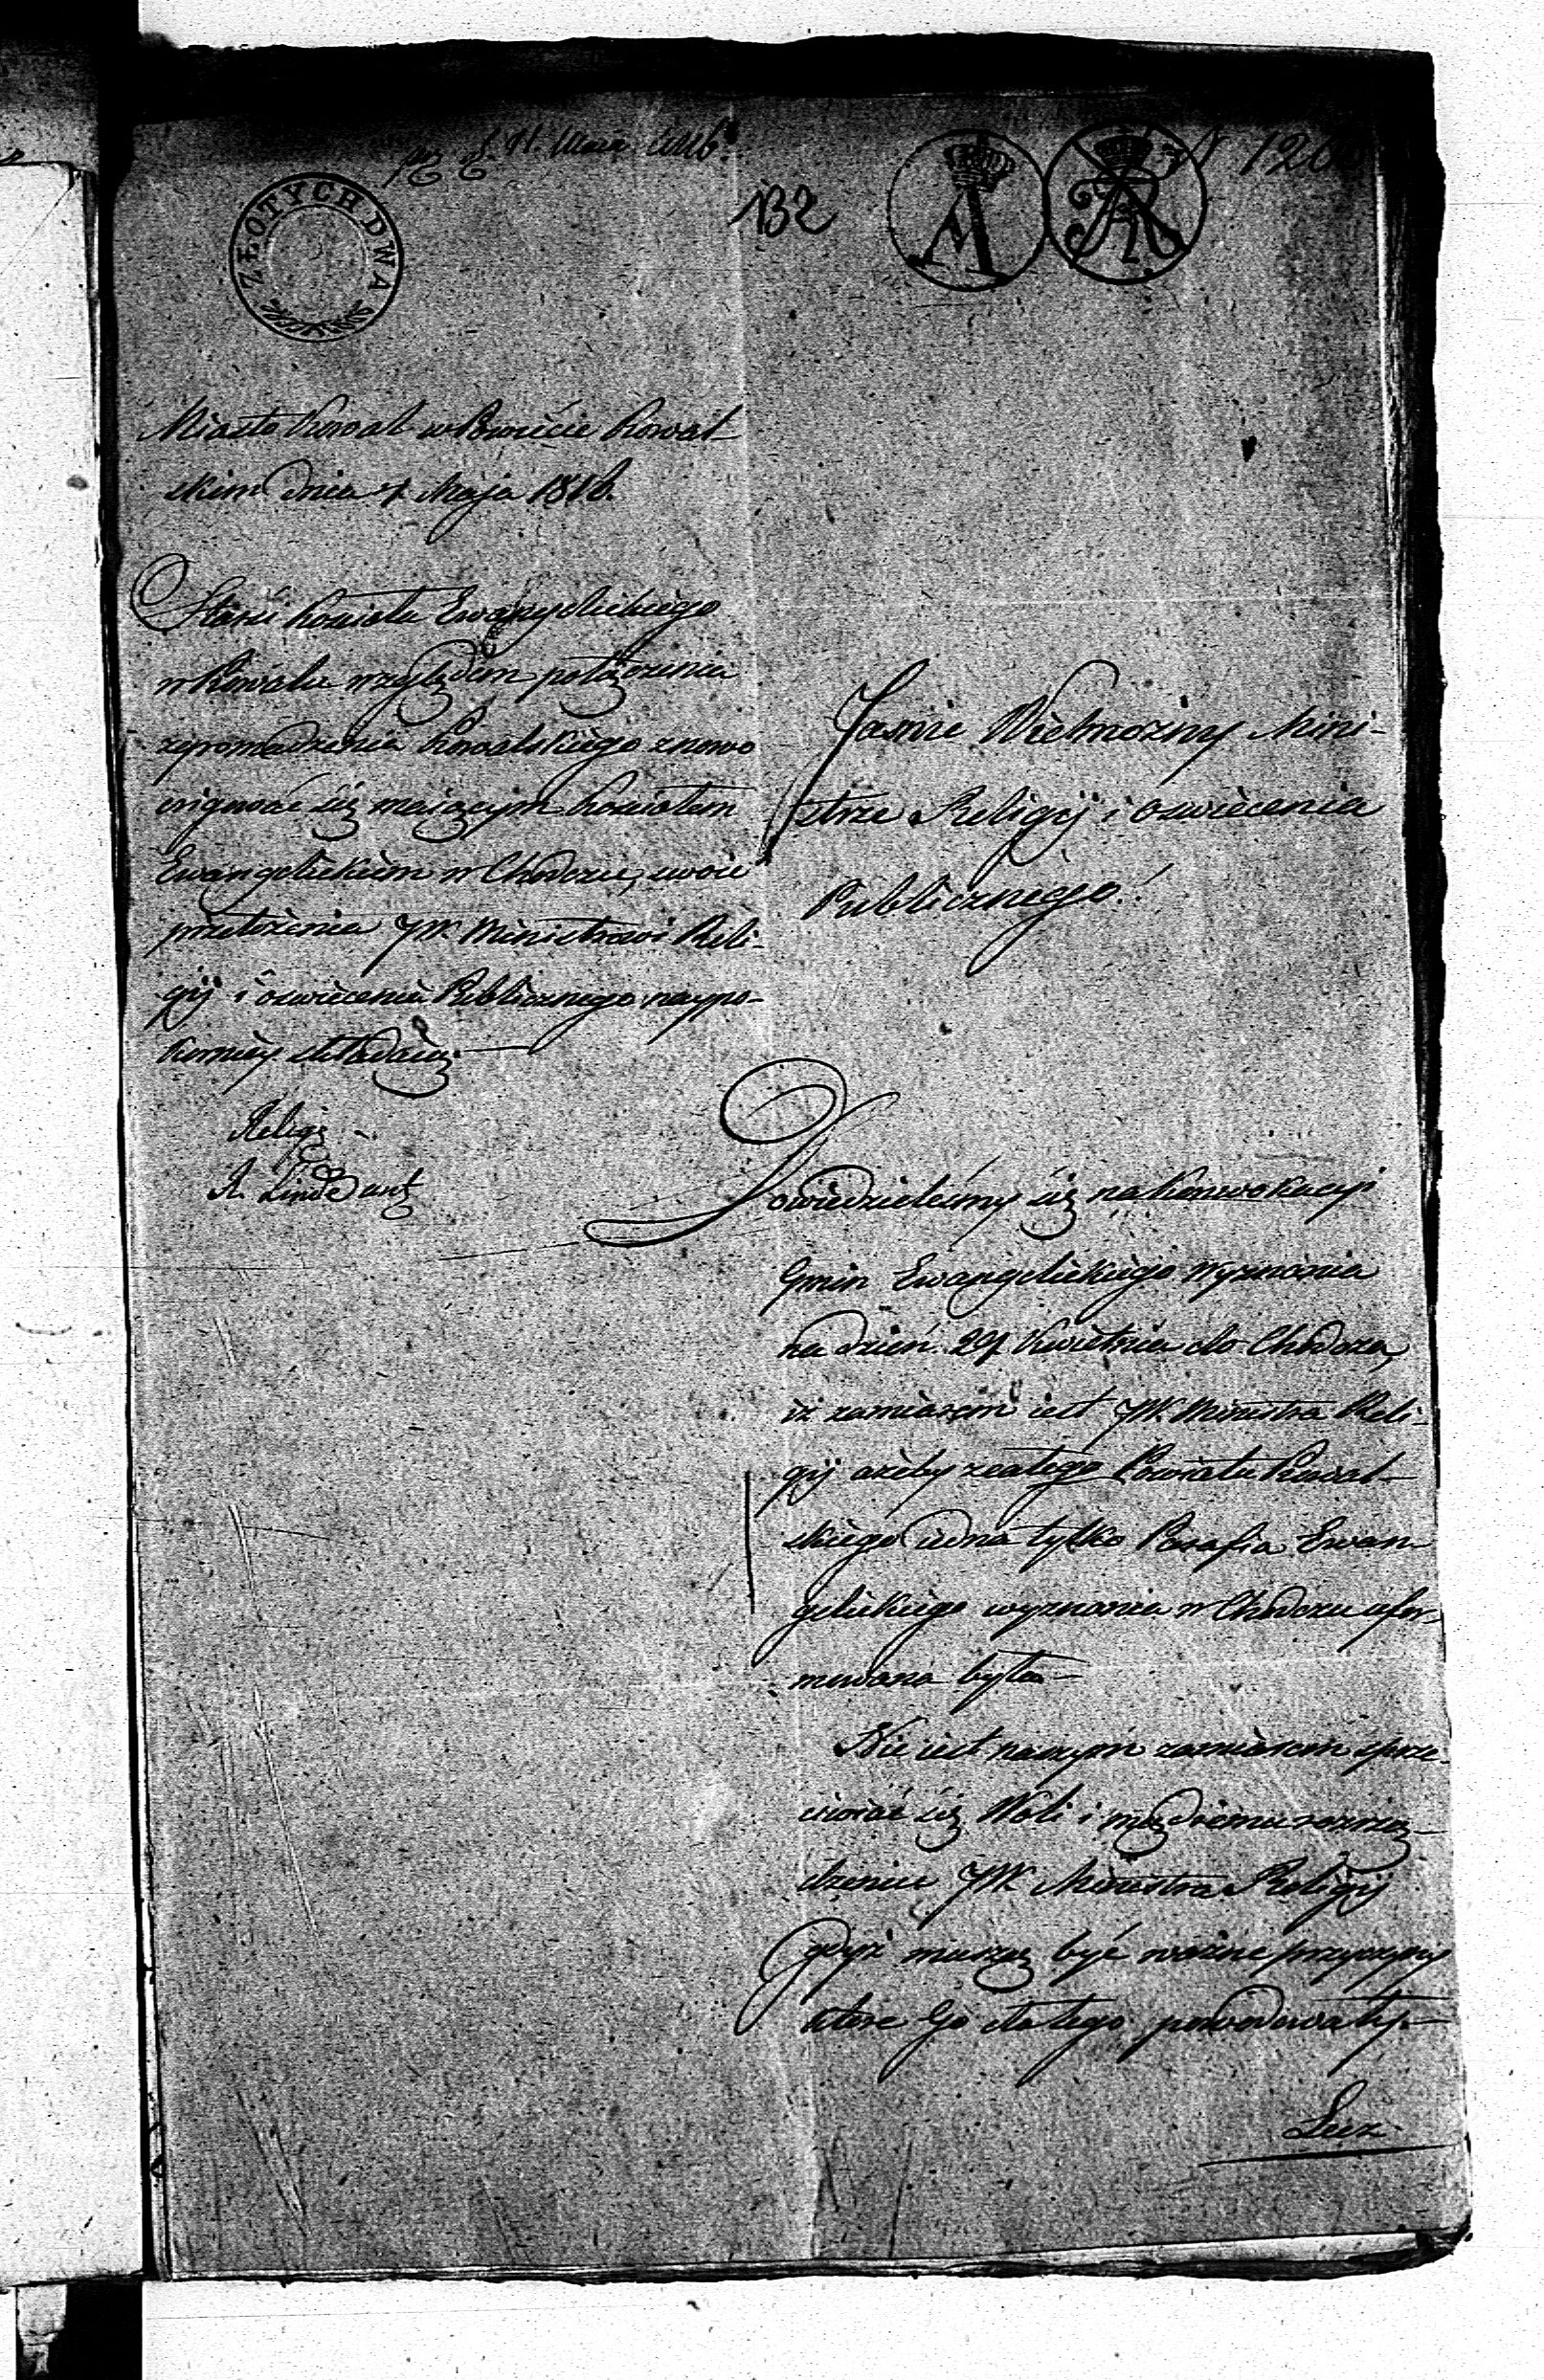 d 11. Maia 1816.
132
ZŁOTYCH DWA
Miasto Kowal w Powiecie Kowal-
skim dnia 7. Maja 1816.
Starsi kościoła Ewangelickiego
w Kowalu względem połączenia
zgromadzenia Kowalskiego z nowo
erigować się maiącym kościołem
Ewangelickiem w Chodczu, swoie
przełożenia JW. Ministrowi Reli-
gij i oswiecenia Publicznego naypo-
korniey składaią
Religij
R. Linde
Jasnie Wielmożny Mini-
strze Religij i oswiecenia
Publicznego!
Dowiedzielismy się na konwokacyi
Gmin Ewangelickiego Wyznania
na dzień 29 Kwietnia do Chodcza,
iż zamiarem iest JW. Ministra Reli-
gij ażeby z całego Powiatu Kowal-
skiego iedna tylko Parafia Ewan-
gelickiego wyznania w Chodczu ufor-
mowana była-
Nie iest naszym zamiarem sprze-
ciwiać się Woli i mądremu rozrzą-
dzeniu JW. Ministra Religij
gdyż muszą być ważne przyczyny
ktore Go do tego powodowały.-
Lecz